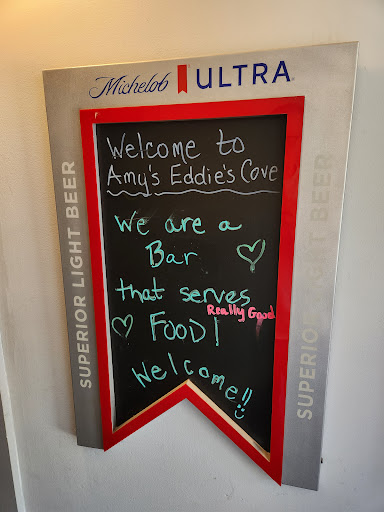 Michelob ULTRA
SUPERIOR LIGHT BEER
Welcome to
Amy's Eddie's Cove
We are a
Bar
that serves
Really Good
FOOD!
Welcome!!
SUPERIOR LIGHT BEER